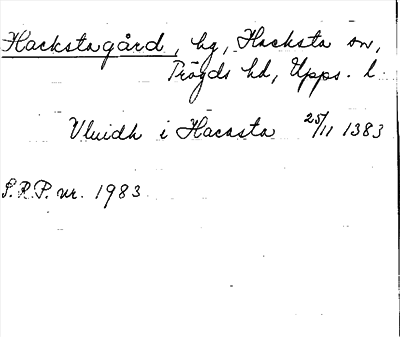 Hackstagård, hg, Hacksta sn,
Trögds hd, Upps. l.
Vluidh i Hacasta 25/11 1383
S.R.P. nr. 1983